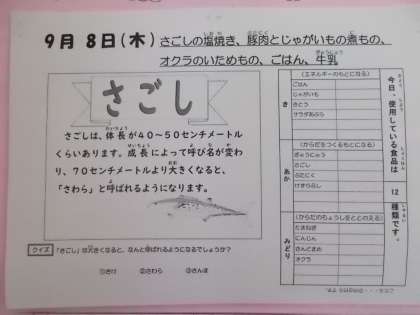 9月 8日(木) さごしの塩焼き、豚肉とじゃがいもの煮もの、
オクラのいためもの、ごはん、牛乳
さごし
さごしは、体長が40〜50センチメートル
くらいあります。成長によって呼び名が変わ
り、70センチメートルより大きくなると、
「さわら」と呼ばれるようになります。
クイズ 「さごし」は大きくなると、なんと呼ばれるようになるでしょうか?
①さけ ②さわら ③さんま
今日、使用している食品は
12
種類です。
き
(エネルギーのもとになる)
ごはん
じゃがいも
さとう
サラダあぶら
あか
(からだをつくるもとになる)
ぎゅうにゅう
さごし
ぶたにく
けずりぶし
みどり
(からだのちょうしをととのえる)
たまねぎ
にんじん
さんどまめ
オクラ